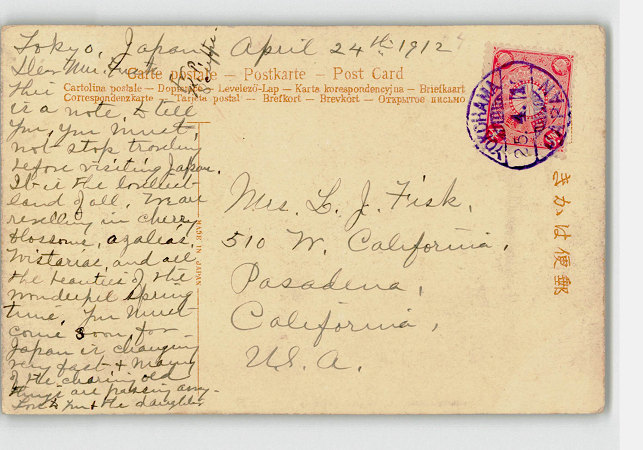 Tokyo, Japan, April 24th 1912
Dear Mrs.
Carte postale — Postkarte — Post Card
Cartolina postale — Dopisnice — Levelező-Lap — Karta korespondencyjna — Briefkaart
Correspondenzkarte — Tarjeta postal — Brefkort — Brevkort — Открытое письмо
This
is a note to tell
you, you must
not stop traveling
before visiting Japan.
It is the loveliest
land of all. We are
revelling in cherry
blossoms, azaleas,
wistarias, and all
the beauties of the
wonderful Spring
time. You must
come soon, for
Japan is changing
very fast & many
of the old
things are passing away.
Love to you & the daughter
MADE IN JAPAN
Mrs. L. J. Fisk,
510 W. California,
Pasadena,
California,
U.S.A.
YOKOHAMA
25.4.12
JAPAN
きかは便郵